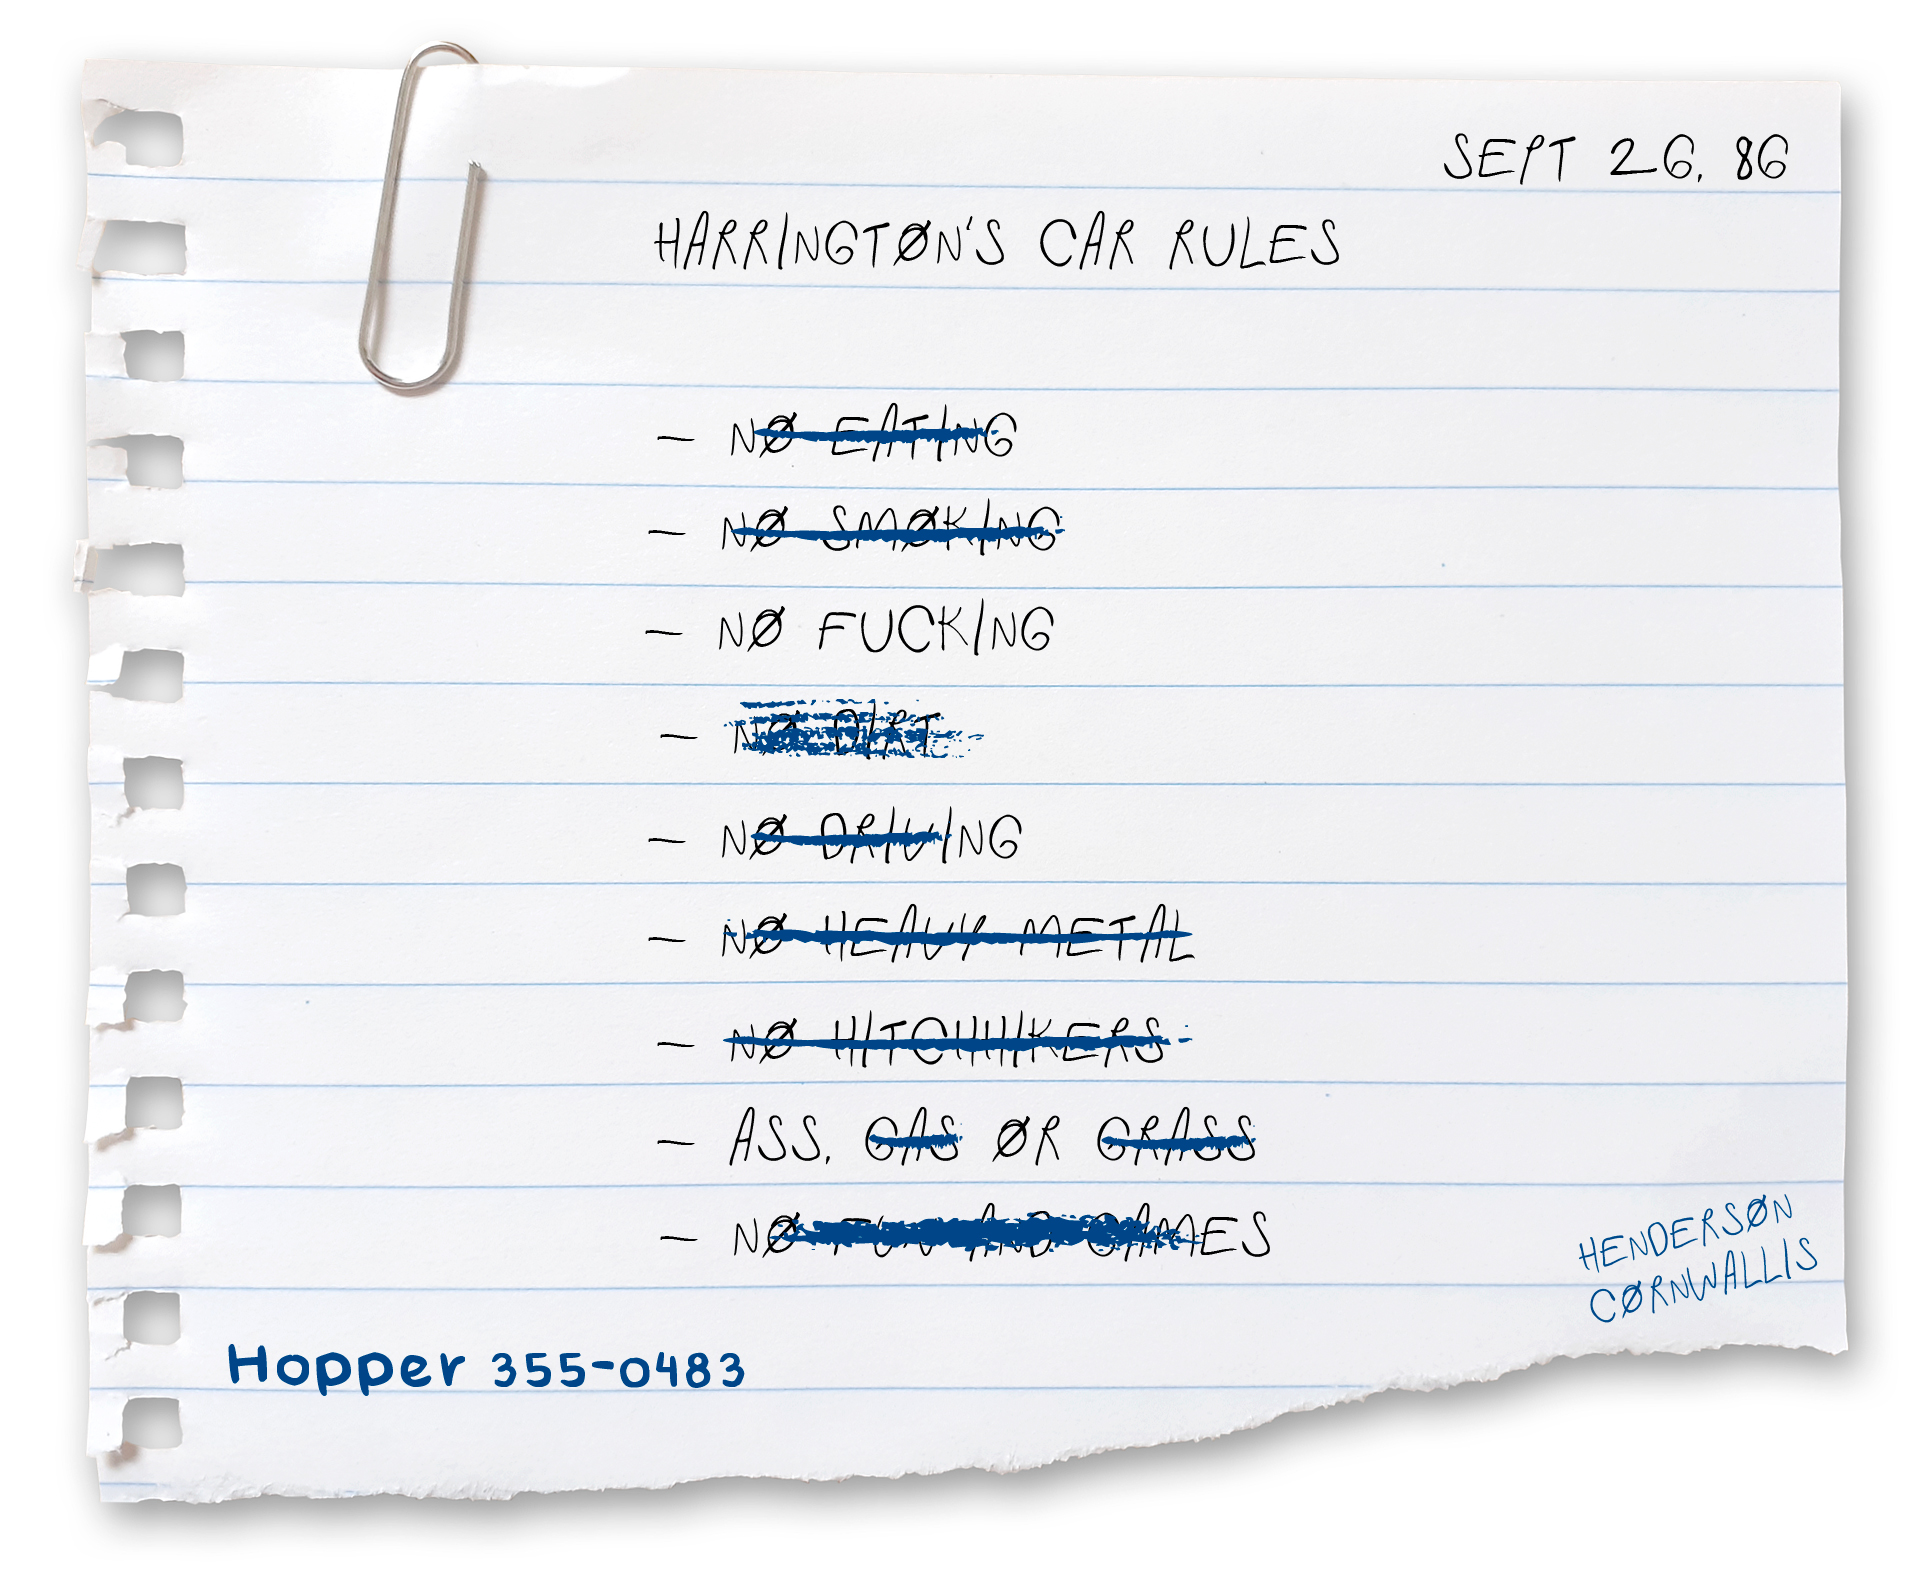 SEPT 26, 86
HARRINGTØN'S CAR RULES
— NØ EATING
— NØ SMØKING
— NØ FUCKING
— NØ DIRT
— NØ DRIVING
— NØ HEAVY METAL
— NØ HITCHHIKERS
— ASS, GAS ØR GRASS
— NØ FUN AND GAMES
HENDERSØN
CØRNWALLIS
Hopper 355-0483